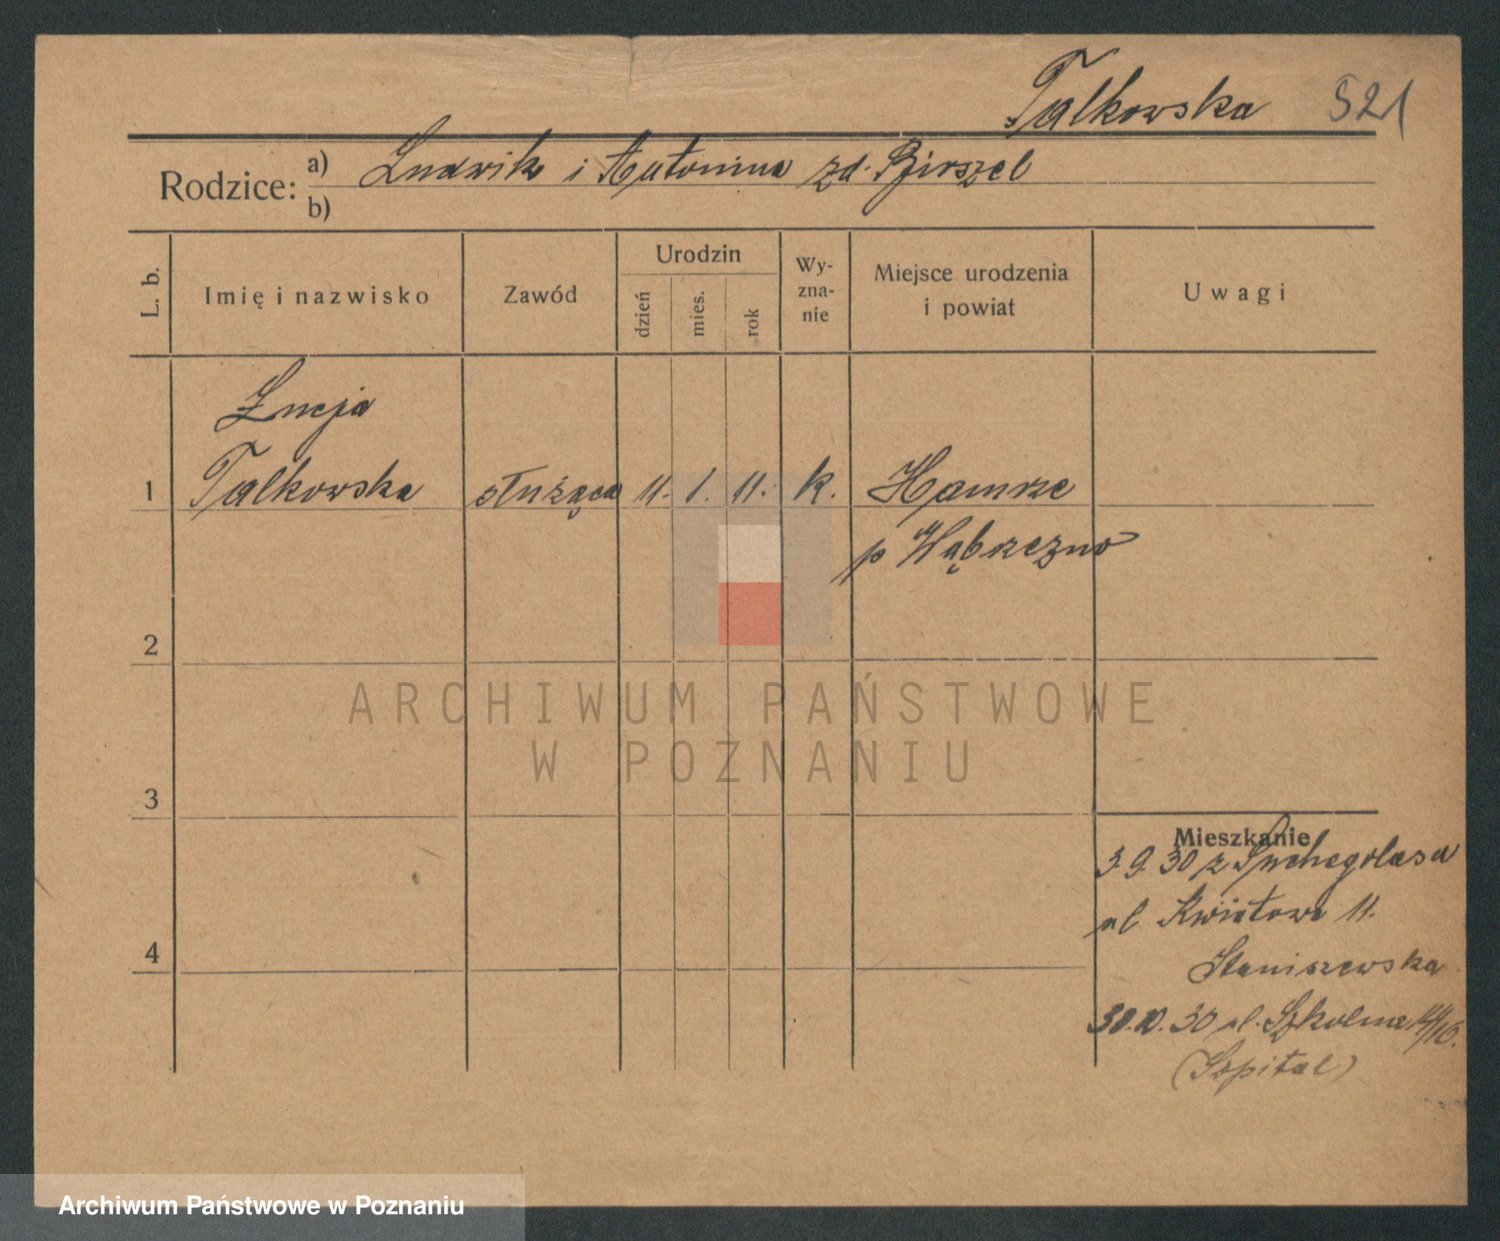 Talkowska 521
Rodzice: a) Ludwik i Antonina zd.
b)
L. b.
Imię i nazwisko
Zawód
Urodzin
dzień
mies.
rok
Wy-
zna-
nie
Miejsce urodzenia
i powiat
Uwagi
Łucja
1 Talkowska służąca 11. 1. 11. k. Hamrze
p Wąbrzezno
2
ARCHIWUM PAŃSTWOWE
W POZNANIU
3
Mieszkanie
3.9.30 z Suchegolasu
ul Kwiatowa 11.
4
Staniszewska
30.10.30 ul. Szkolna 14/16.
(Szpital)
Archiwum Państwowe w Poznaniu